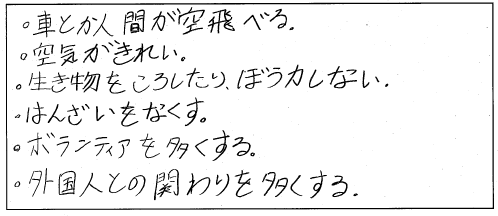 。車とか人間が空飛べる.
。空気がきれい。
。生き物をころしたり、ぼう力しない.
。はんざいをなくす。
。ボランティアを多くする。
。外国人との関わりを多くする.